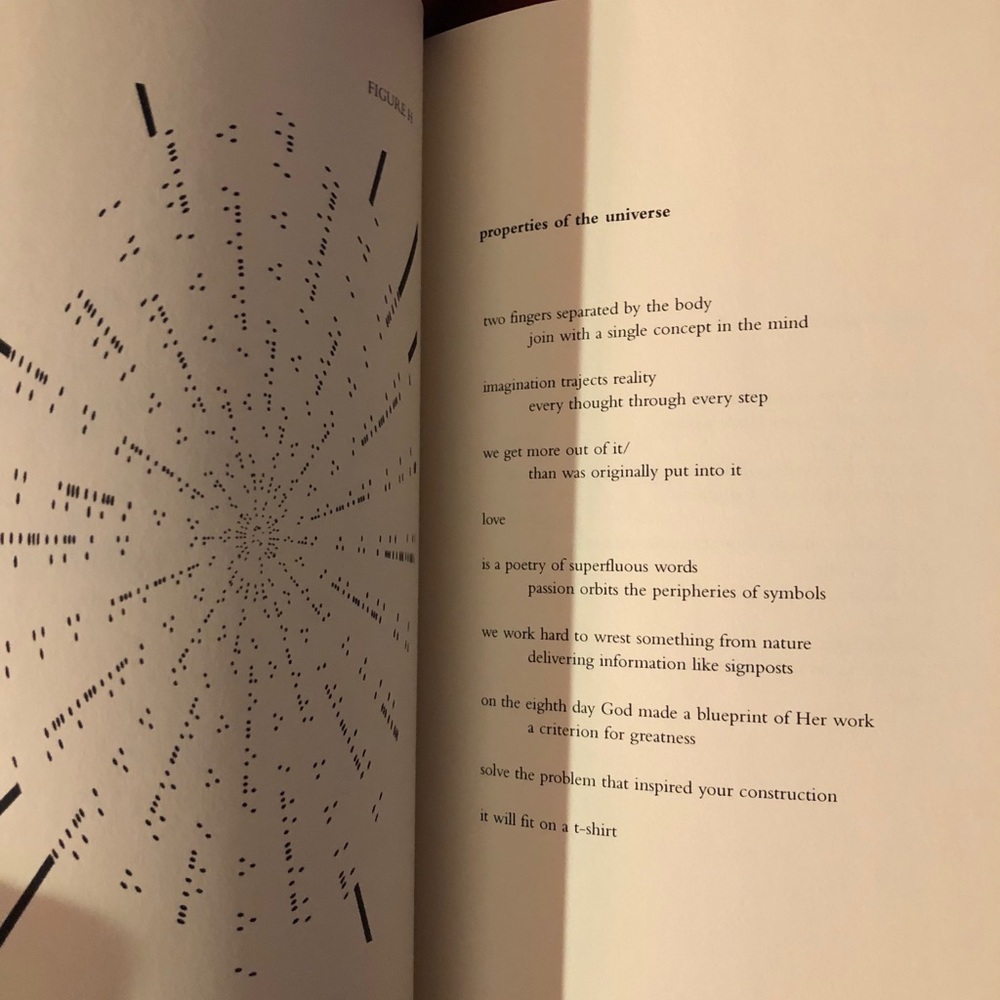 FIGURE
properties of the universe
two fingers separated by the body
join with a single concept in the mind
imagination trajects reality
every thought through every step
we get more out of it/
than was originally put into it
love
is a poetry of superfluous words
passion orbits the peripheries of symbols
we work hard to wrest something from nature
delivering information like signposts
on the eighth day God made a blueprint of Her work
a criterion for greatness
solve the problem that inspired your construction
it will fit on a t-shirt